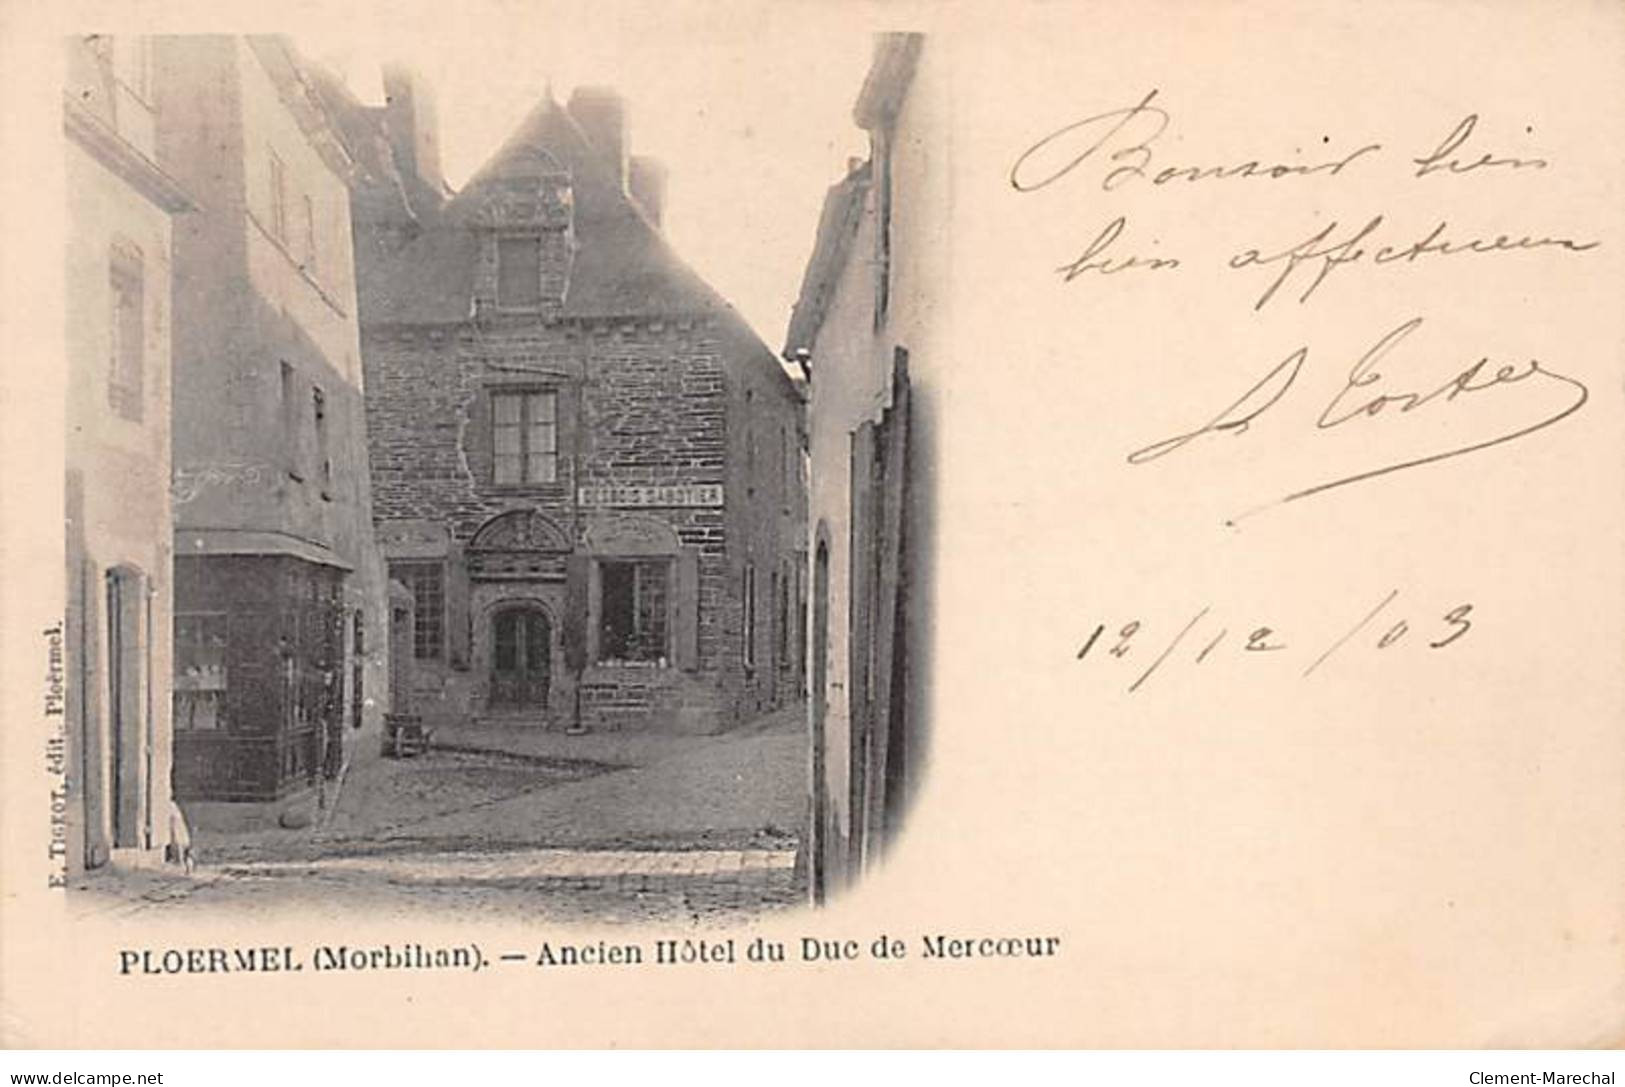 Bonsoir bien
bien affectueux
12/12/03
DESBOIS SABOTIER
E. TIGEOT, édit. Ploërmel.
PLOERMEL (Morbihan). — Ancien Hôtel du Duc de Mercœur
delcampe.net
Clement-Marechal